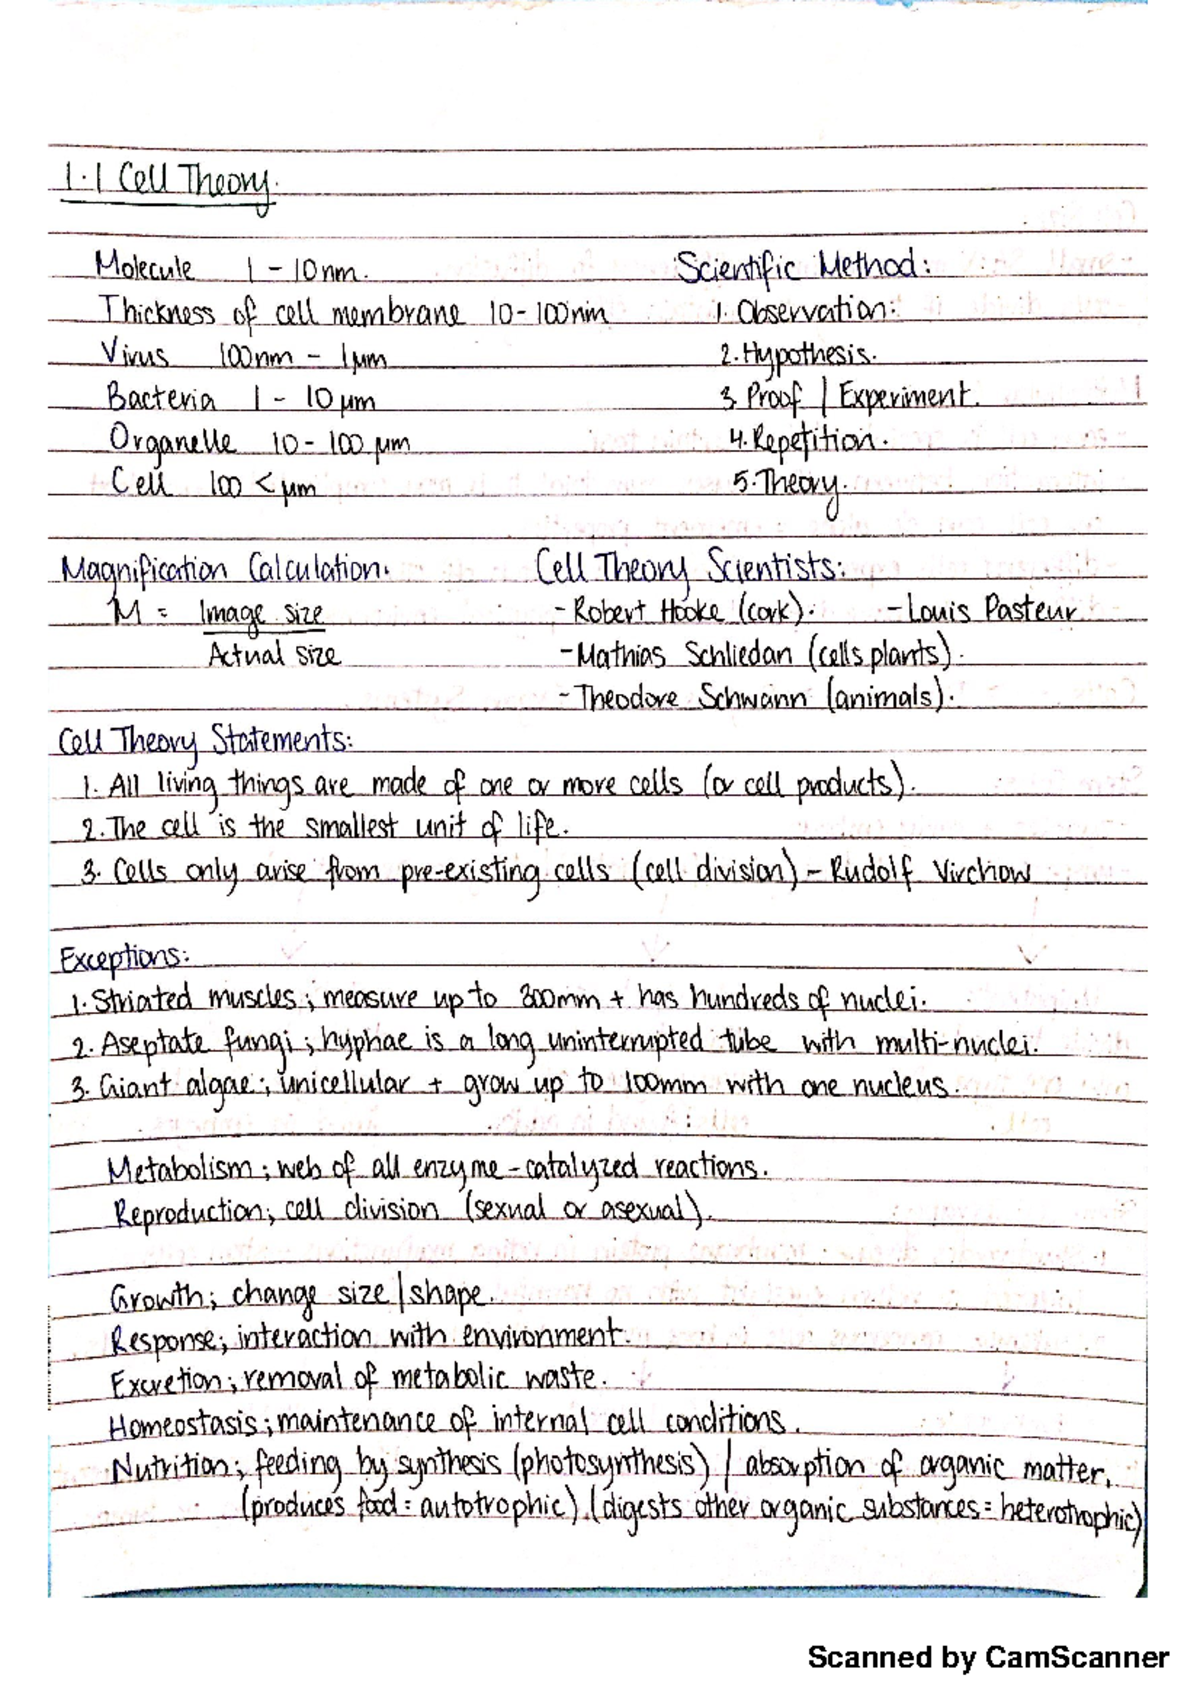 1.1 Cell Theory.
Molecule 1 - 10nm.
Thickness of cell membrane 10-100nm
Virus 100nm - 1μm
Bacteria 1 - 10 μm
Organelle 10 - 100 μm
Cell 100 < μm
Scientific Method:
1. Observation:
2. Hypothesis.
3. Proof / Experiment.
4. Repetition.
5. Theory.
Magnification Calculation:
M = Image size
Actual size
Cell Theory Scientists:
- Robert Hooke (cork). - Louis Pasteur
- Mathias Schliedan (cells plants).
- Theodore Schwann (animals).
Cell Theory Statements:
1. All living things are made of one or more cells (or cell products).
2. The cell is the smallest unit of life.
3. Cells only arise from pre-existing cells (cell division) - Rudolf Virchow
Exceptions:
1. Striated muscles; measure up to 300mm + has hundreds of nuclei.
2. Aseptate fungi; hyphae is a long uninterrupted tube with multi-nuclei.
3. Giant algae; unicellular + grow up to 100mm with one nucleus.
Metabolism; web of all enzyme-catalyzed reactions.
Reproduction; cell division (sexual or asexual).
Growth; change size / shape.
Response; interaction with environment.
Excretion; removal of metabolic waste.
Homeostasis; maintenance of internal cell conditions.
Nutrition; feeding by synthesis (photosynthesis) / absorption of organic matter.
(produces food = autotrophic). (digests other organic substances = heterotrophic)
Scanned by CamScanner